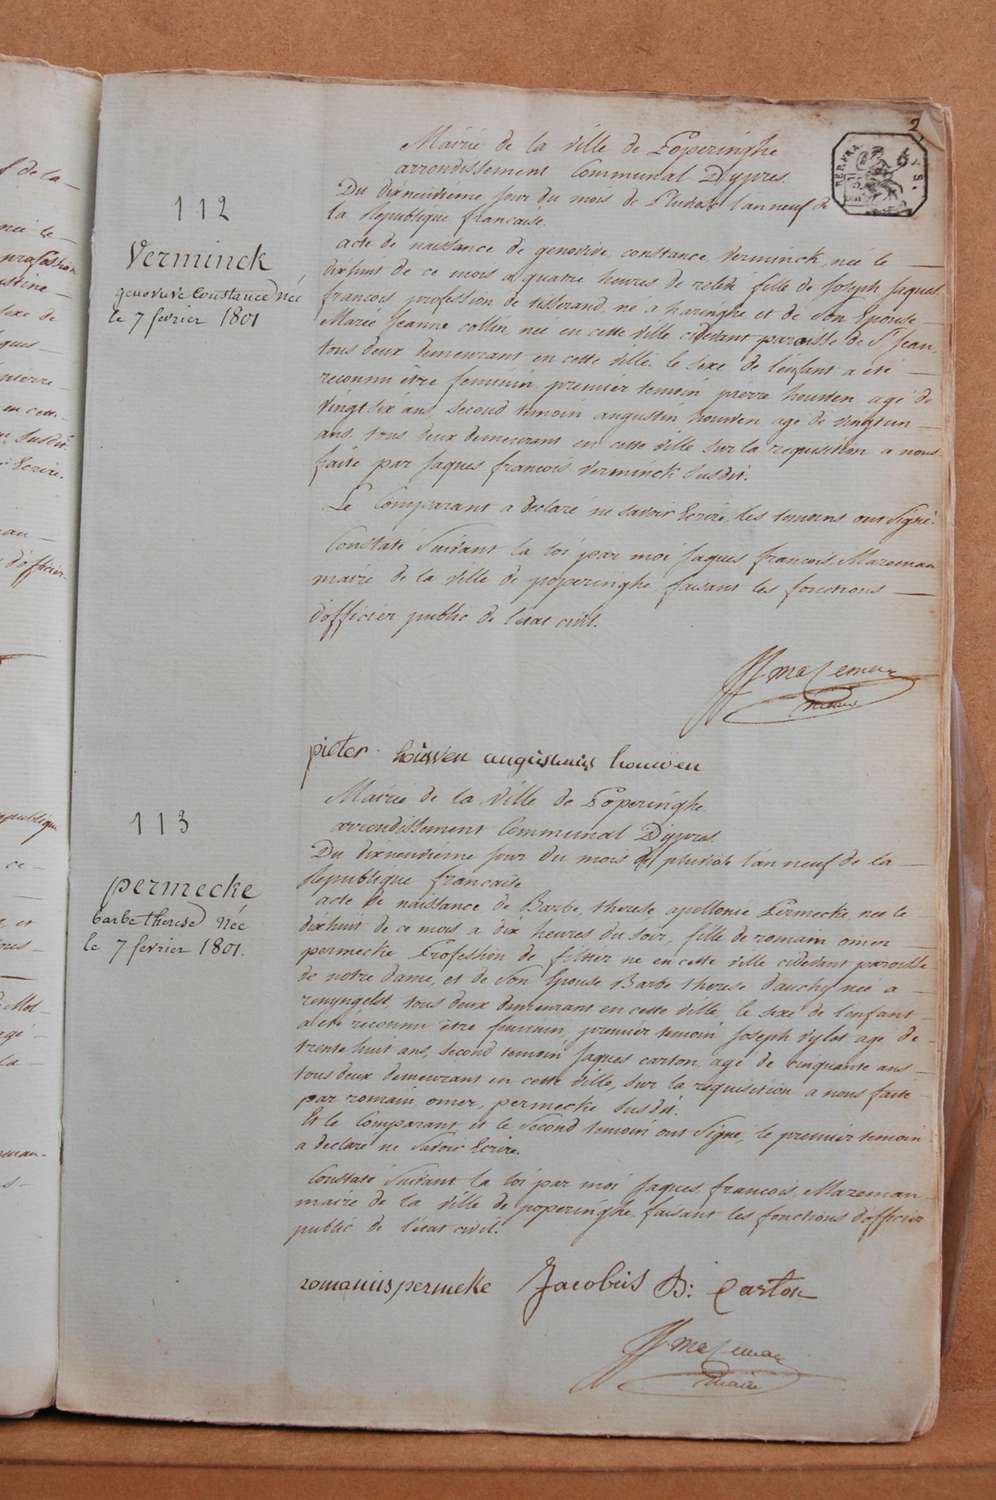 2
REP. FRA.
112
Verminck
genovive Constance Née
le 7 fevrier 1801
Mairie de la ville de Poperinghe
arrondissement Communal D'ypres
Du dixneuvieme jour du mois de Pluviose l'an neuf de
la Republique francaise.
acte de naissance de genovive, constance, Verminck, née le
dixhuit de ce mois a quatre heures de relevé fille de Joseph Jaques
francois profession de tisserand, né a haringhe et de Son Epouse
Marie Jeanne collin, née en cette ville cidevant paroisse de St Jean,
tous deux demeurant en cette ville. le sexe de l'enfant a été
reconnu être feminin, premier temoin pierre houwen agé de
vingt six ans, second temoin augustin houwen agé de vingt un
ans, tous deux demeurant en cette ville sur la requisition a nous
faite par Jaques francois Verminck susdit.
Le Comparant a declaré ne savoir Ecrire, les temoins ont signé.
Constaté Suivant la loi par moi Jaques francois Mazeman
maire de la ville de poperinghe faisant les fonctions
d'officier public de l'état civil.
JJ mazeman
maire
pieter houwen augustinus houwen
113
permecke
barbe therese Née
le 7 fevrier 1801.
Mairie de la ville de Poperinghe
arrondissement Communal D'ypres.
Du dixneuvieme jour du mois de pluviose l'an neuf de la
Republique francaise
acte de naissance de Barbe, therese, apollonie Permecke, née le
dixhuit de ce mois a dix heures du soir, fille de romain omer
permecke Profession de né en cette ville cidevant paroisse
de notre dame, et de Son Epouse Barbe therese dauchy née a
renyngelst, tous deux demeurant en cette ville, le sexe de l'enfant
a été reconnu être feminin, premier temoin Joseph agé de
trente huit ans, second temoin Jaques carton, agé de cinquante ans
tous deux demeurant en cette ville, sur la requisition a nous faite
par romain, omer, permecke Susdit.
Et le Comparant et le Second temoin ont Signé, le premier temoin
a declaré ne Savoir Ecrire.
Constaté Suivant la loi par moi Jaques francois Mazeman
maire de la ville de poperinghe faisant les fonctions d'officier
public de l'état civil.
romanus permeke Jacobus B: Carton
JJ mazeman
maire